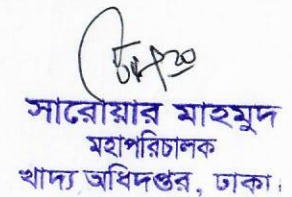 সারোয়ার মাহমুদ
মহাপরিচালক
খাদ্য অধিদপ্তর, ঢাকা।